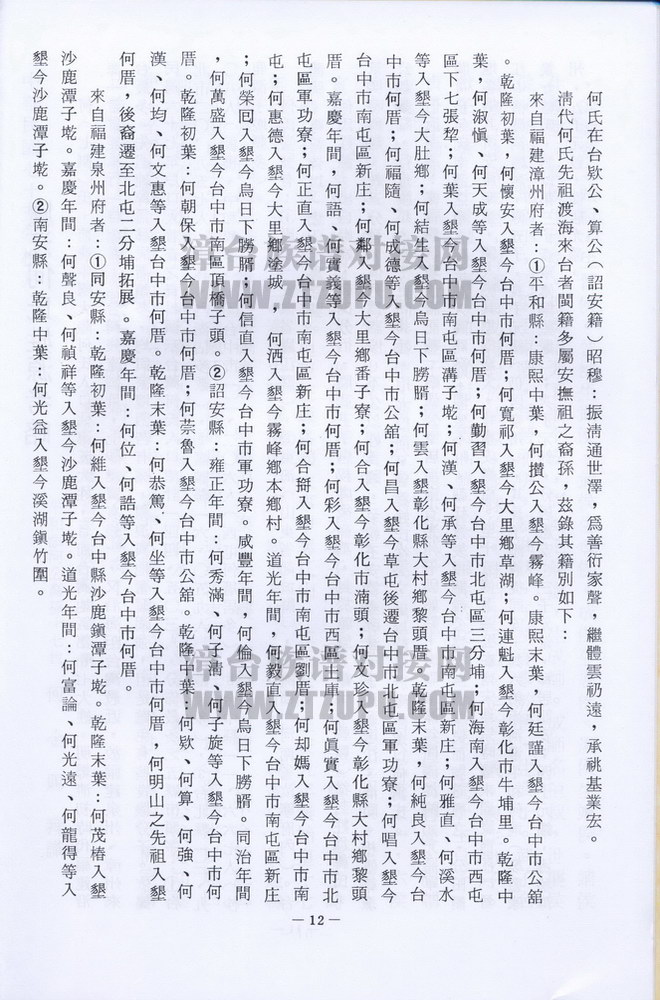 何氏在台欵公、算公（詔安籍）昭穆：振淸通世澤，爲善衍家聲，繼體雲礽遠，承祧基業宏。
淸代何氏先祖渡海來台者閩籍多屬安撫祖之裔孫，玆錄其籍別如下：
來自福建漳州府者：①平和縣：康熙中葉，何攢公入墾今霧峰。康熙末葉，何廷謹入墾今台中市公舘
。乾隆初葉，何懷安入墾今台中市何厝；何寬祁入墾今大里鄉草湖；何連魁入墾今彰化市牛埔里。乾隆中
葉，何淑愼、何天成等入墾今台中市何厝；何勤習入墾今台中市北屯區三分埔；何海南入墾今台中市西屯
區下七張犂；何葉入墾今台中市南屯區溝子墘；何漢、何承等入墾今台中市南屯區新庄；何雅直、何溪水
等入墾今大肚鄉；何結生入墾今烏日下朥胥；何雲入墾彰化縣大村鄉黎頭厝。乾隆末葉，何純良入墾今台
中市何厝；何福隨、何成德等入墾今台中市公舘；何昌入墾今草屯後遷台中市北屯區軍功寮；何唱入墾今
台中市南屯區新庄；何鄰入墾今大里鄉番子寮；何合入墾今彰化市湳頭；何文珍入墾今彰化縣大村鄉黎頭
厝。嘉慶年間，何語、何實義等入墾今台中市何厝；何彩入墾今台中市西區土庫；何眞實入墾今台中市北
屯區軍功寮；何正直入墾今台中市南屯區新庄；何合搿入墾今台中市南屯區劉厝；何却媽入墾今台中市南
屯；何惠德入墾今大里鄉塗城，何洒入墾今霧峰鄉本鄉村。道光年間，何毅直入墾今台中市南屯區新庄
；何榮囘入墾今烏日下朥胥；何信直入墾今台中市軍功寮。咸豐年間，何倫入墾今烏日下朥胥。同治年間
，何萬盛入墾今台中市南區頂橋子頭。②詔安縣：雍正年間：何秀滿、何子濔、何子旋等入墾今台中市何
厝。乾隆初葉：何朝保入墾今台中市何厝；何崇魯入墾今台中市公舘。乾隆中葉：何欵、何算、何強、何
漢、何均、何文惠等入墾台中市何厝。乾隆末葉：何恭篤、何坐等入墾今台中市何厝，何明山之先祖入墾
何厝，後裔遷至北屯二分埔拓展。嘉慶年間：何位、何誥等入墾今台中市何厝。
來自福建泉州府者：①同安縣：乾隆初葉：何維入墾今台中縣沙鹿鎭潭子墘。乾隆末葉：何茂椿入墾
沙鹿潭子墘。嘉慶年間：何聲良、何禎祥等入墾今沙鹿潭子墘。道光年間：何富論、何光遠、何龍得等入
墾今沙鹿潭子墘。②南安縣：乾隆中葉：何光益入墾今溪湖鎭竹圍。
— 12 —
漳台族谱对接网
WWW.ZTZUPU.COM
漳台族谱对接网
WWW.ZTZUPU.COM